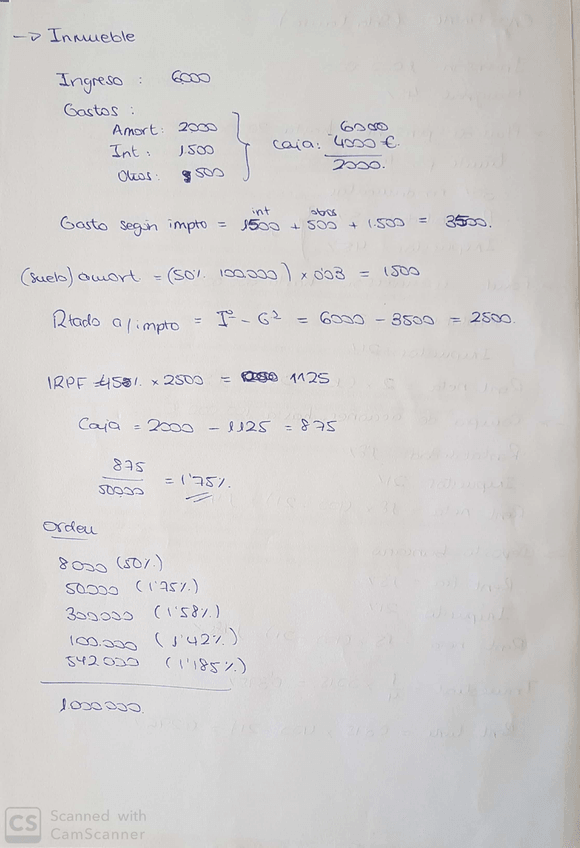 → Inmueble
Ingreso : 6000
Gastos :
Amort: 2000
Int : 1.500
Otros: 500
caja: 6000
-4000 €.
2000.
int otros
Gasto según impto = 1500 + 500 + 1.500 = 3500.
(suelo) amort = (50% 100.000) x 0'03 = 1500
Rtado a/impto = Iº - Gº = 6000 - 3500 = 2500.
IRPF 45% x 2500 = 1125
Caja = 2000 - 1125 = 875
875
50000 = 1'75%.
Orden
8000 (50%)
50.000 (1'75%)
300000 (1'58%)
100.000 (1'42%)
542000 (1'185%)
1000000.
CS Scanned with
CamScanner